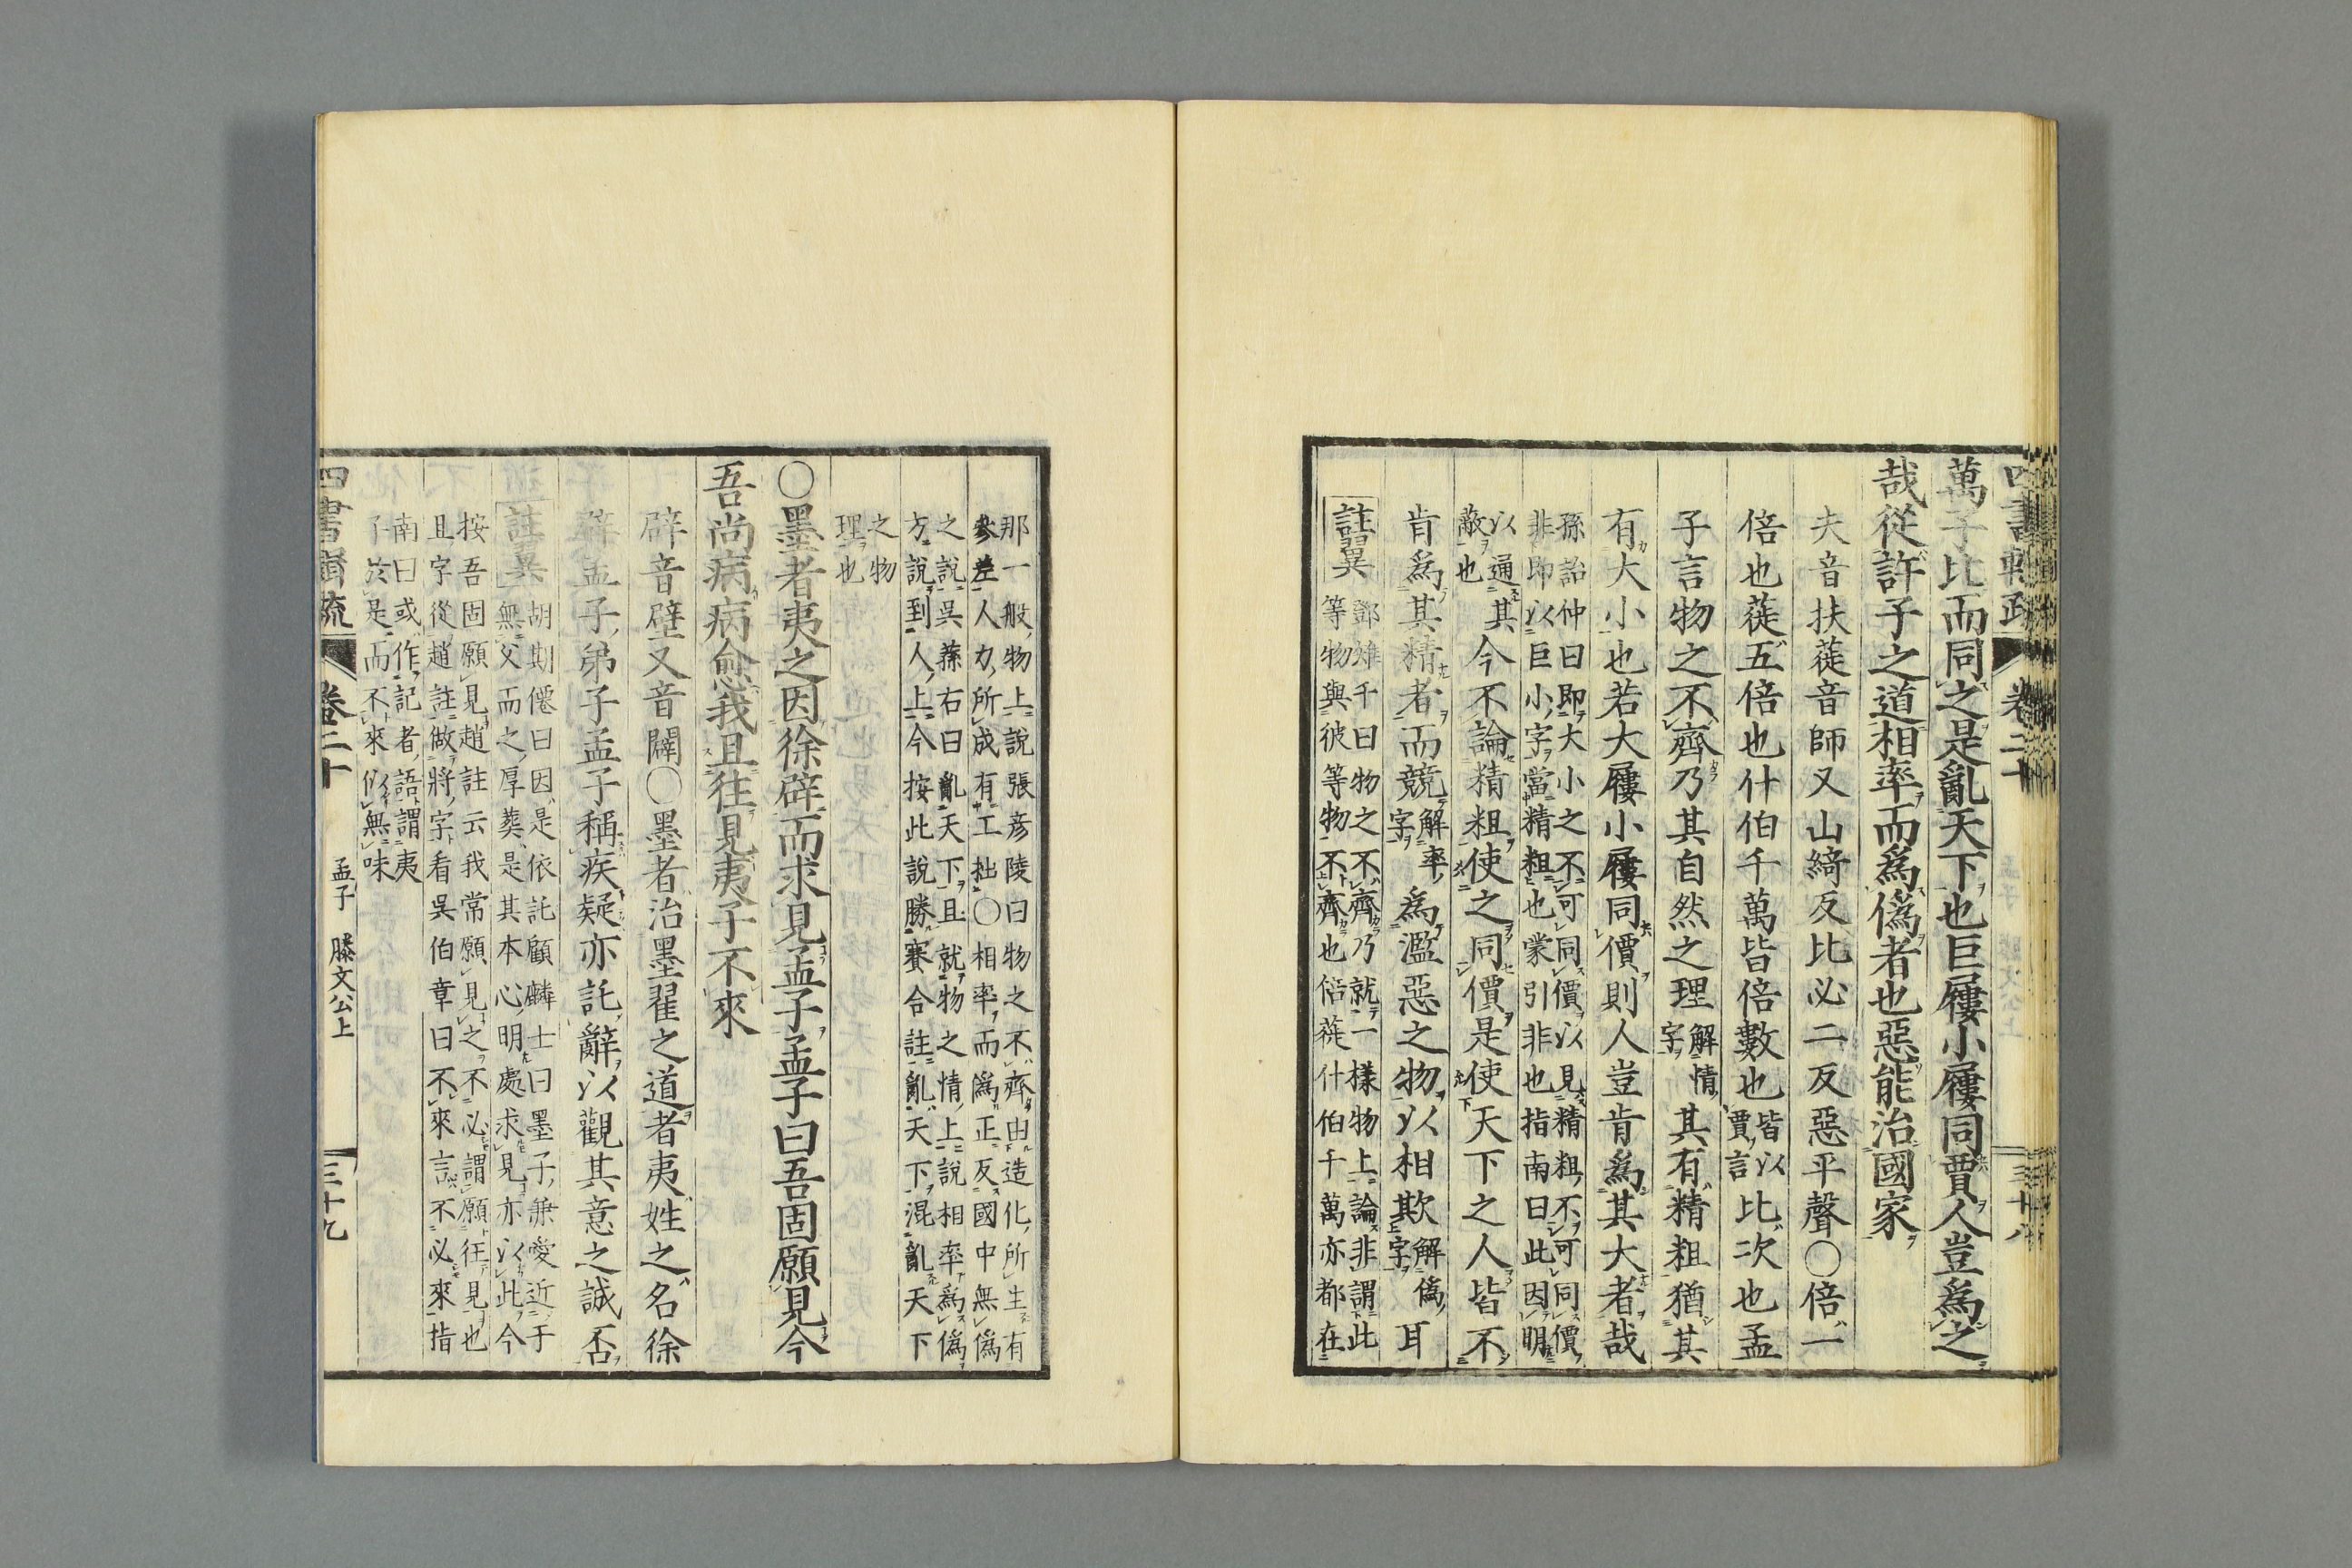 萬子比而同之是亂天下也巨屨小屨同賈人豈爲之
哉從許子之道相率而爲僞者也惡能治國家
夫音扶蓰音師又山綺反比必二反惡平聲○倍一
倍也蓰五倍也什伯千萬皆倍數也皆以賈言比次也孟
子言物之不齊乃其自然之理解情字其有精粗猶其
有大小也若大屨小屨同價則人豈肯爲其大者哉
孫詒仲曰即大小之不可同價以見精粗不可同價
非即以巨小字當精粗也蒙引非也指南曰此因明
以通其蔽也今不論精粗使之同價是使天下之人皆不
肯爲其精者而競解率字爲濫惡之物以相欺解僞字耳
註異
鄧雉千曰物之不齊乃就一樣物上論非謂此
等物與彼等物不齊也倍蓰什伯千萬亦都在
那一般物上說張彦陵曰物之不齊由造化所生有
參差人力所成有工拙○相率而爲正反國中無僞
之說吳蓀右曰亂天下且就物之情上說相率爲僞
方說到人上今按此說勝賽合註亂天下混亂天下
之物
理也
○墨者夷之因徐辟而求見孟子孟子曰吾固願見今
吾尚病病愈我且往見夷子不來
辟音壁又音闢○墨者治墨翟之道者夷姓之名徐
辟孟子弟子孟子稱疾疑亦託辭以觀其意之誠否
註異
胡期僊曰因是依託顧麟士曰墨子兼愛近于
無父而之厚葬是其本心明處求見亦以此今
按吾固願見趙註云我常願見之不必謂願往見也
且字從趙註做將字看吳伯章曰不來言不必來指
南曰或作記者語謂夷
子於是而不來似無味
四書輯疏
卷二十
孟子 滕文公上
三十九